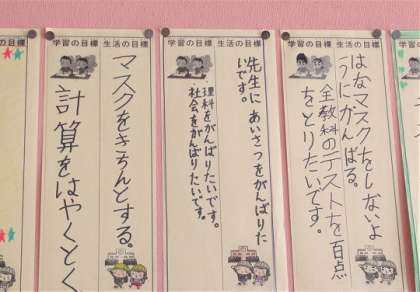 学習の目標 生活の目標
マスクをきちんとする。
計算をはやくとく
学習の目標 生活の目標
先生に あいさつをがんばりた
いです。
理科をがんばりたいです。
社会をがんばりたいです。
学習の目標 生活の目標
はなマスクをしないよ
うにがんばる。
全教科のテストを百点
をとりたいです。